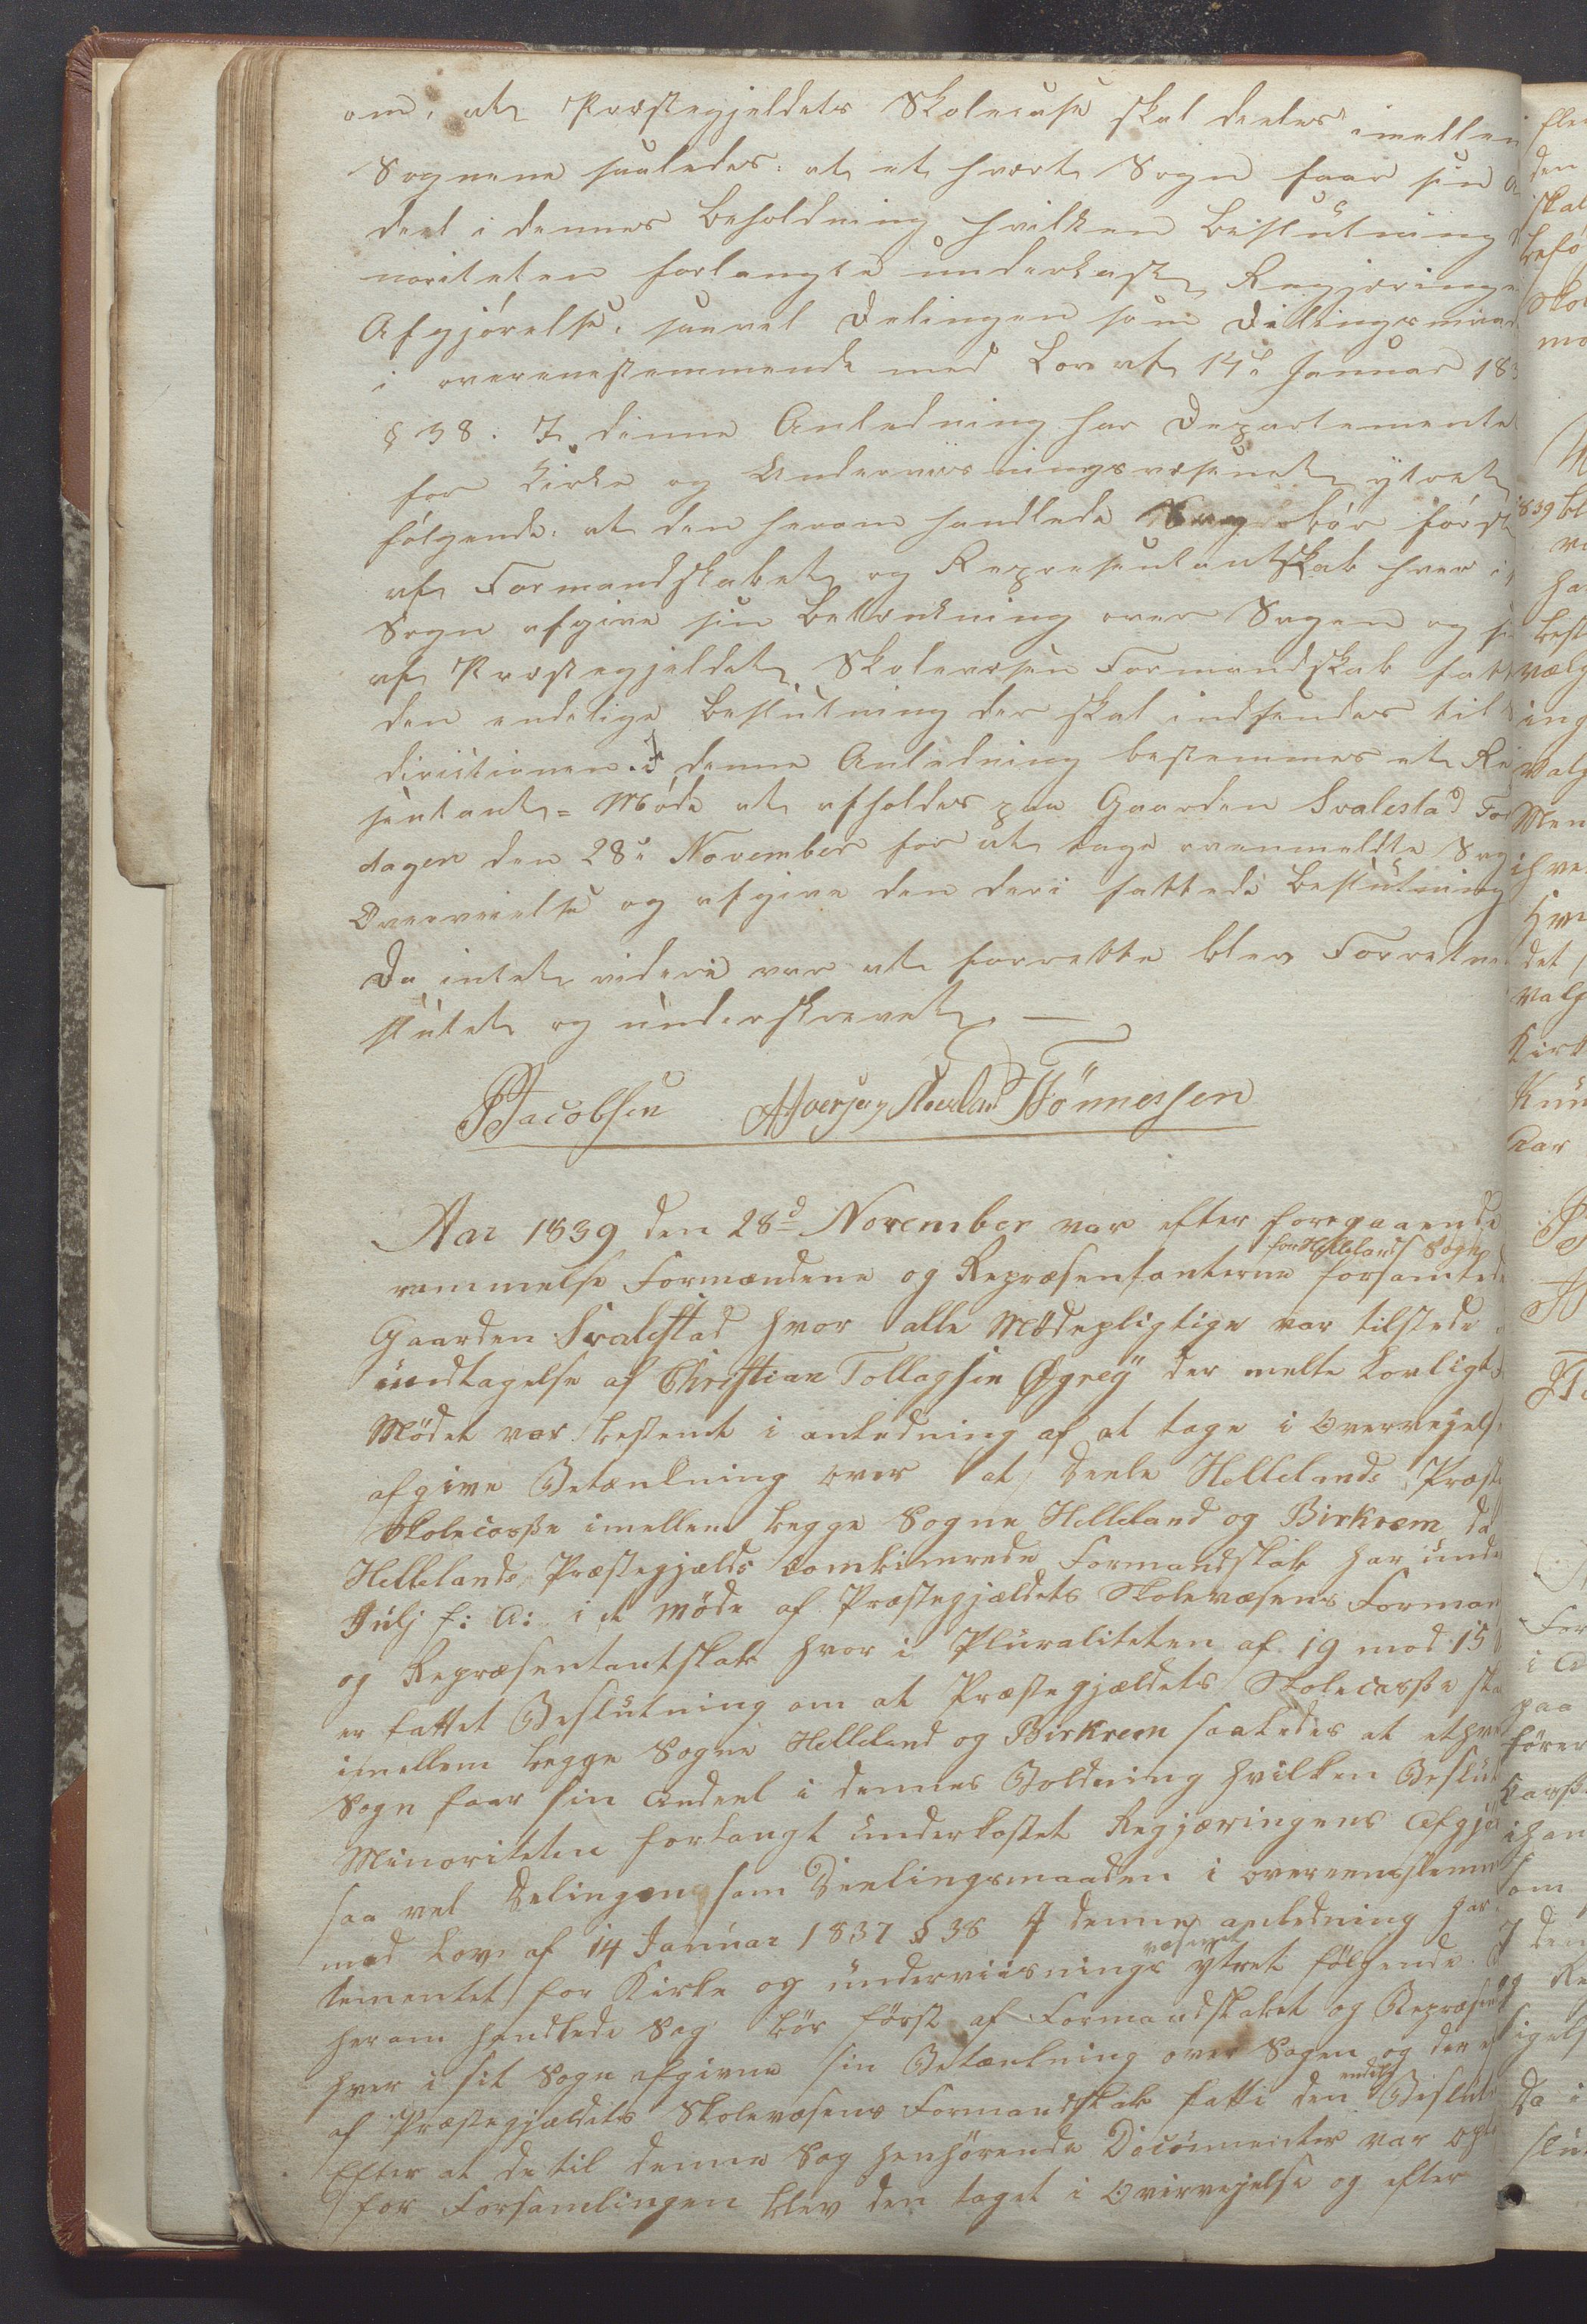 om, at Præstegjeldets Skolecasse skal deeles imellem
Sognene saaledes: at et hvert Sogn faar sin
deel i dennes Beholdning hvilken Beslutning
noriteten forlangte underkast Regjeringe
Afgjörelse, saavel Delingen som Delingsmaa
i overenestemmende med Lov af 14de Januar 183
§ 38. I denne Anledning har Departemente
for Kirke og Underviisningsvæsenet ytret
fölgende: at den herom handlede Sag bör först
af Formandskabet og Representantskab hver i
Sogn afgive sin Betænkning over Sagen og
af Præstegjeldet Skolevæsen Formandskab fatt
den endelige Beslutning der skal indsendes til
directionen. I denne Anledning bestemmes et Re
sentant-Möde at afholdes paa Gaarden Svalestad
dagen den 28de November for at tage ovenmeldte Sag
Overveielse og afgive den deri fattede Beslutning
Da intet videre var at forrette blev Forretn
slutet og underskrevet. —
Jacobsen Tönnessen
Aar 1839 den 28d November var efter foregaaende
for Hellelands Sogn
rammelse Formændene og Repræsentanterne forsamlede
Gaarden Svalestad hvor alle Mödepligtige var tilstede
undtagelse af Christian Tollagsen Øgrey der melte Lovligt
Mödet var bestemt i anledning af at tage i Overvejels
afgive Betænkning over at Deele Hellelands Præste
Skolecasse imellem begge Sogne Helleland og Birkrem da
Hellelands Præstegjælds Combinerede Formandskab har unde
Julj f: A: i et möde af Præstegjældets Skolevæsens Forman
og Repræsentantskab hvor i Pluraliteten af 19 mod 15
er fattet Beslutning om at Præstegjældets Skolecasse ska
imellem begge Sogne Helleland og Birkrem saaledes at ethve
Sogn faar sin Andeel i dennes Boldning hvilken Beslut
Minoriteten forlangt underkastet Regjæringens Afgjö
saa vel Delingen som Deelingsmaaden i overeensstemm
med Lov af 14 Januar 1837 § 38 I denne anledning har
væsenet
tementet for Kirke og underviisnings ytret fölgende
herom handlede Sag bör först af Formandskabet og Repræsen
hver i sit Sogn afgivne sin Betænkning over Sagen og der
endelig
af Præstegjældets Skolevæsens Formandskab fatte den Beslut
Efter at de til denne Sag henhörende Documenter var opl
for Forsamlingen blev den taget i Overvejelse og efter